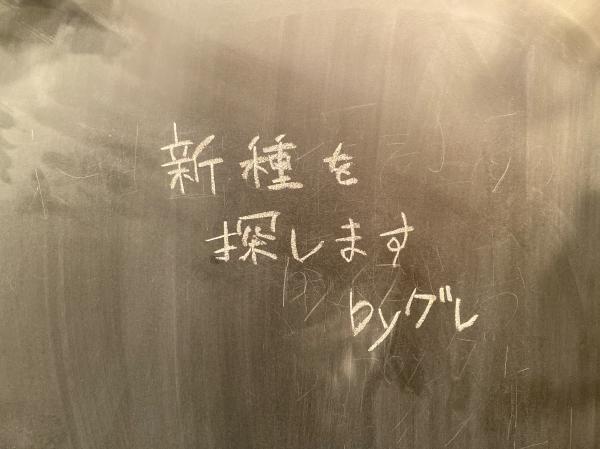 新種を
探します
byグレ